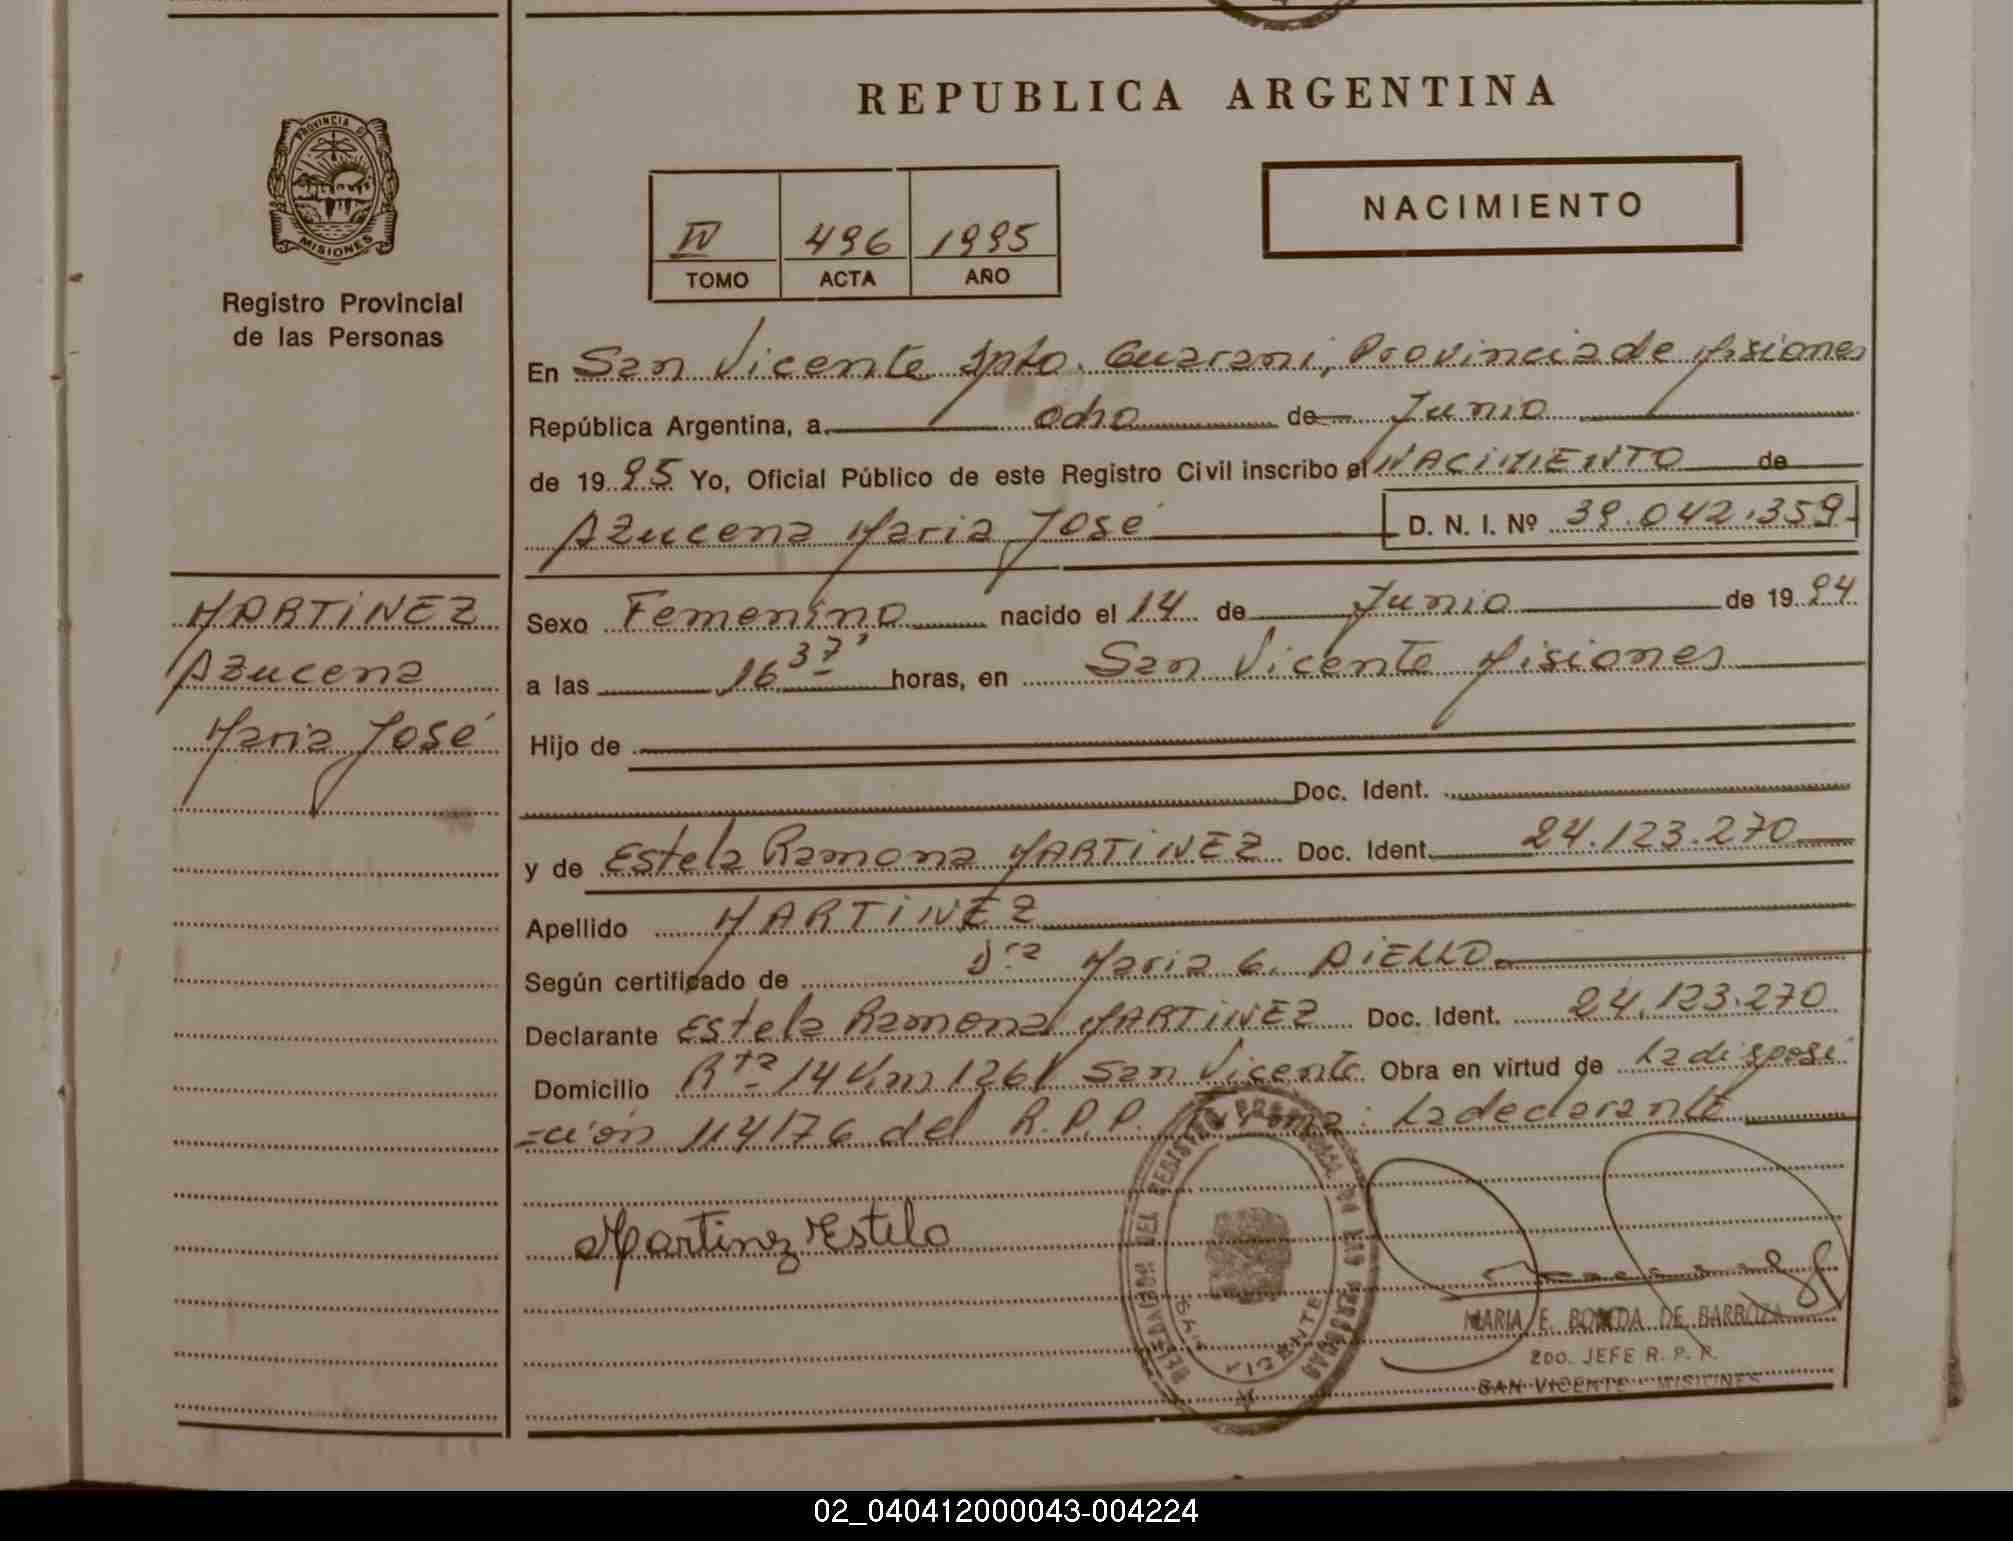 REPUBLICA ARGENTINA
PROVINCIA DE
MISIONES
Registro Provincial
de las Personas
IV 496 1995
TOMO ACTA AÑO
NACIMIENTO
En San Vicente Dpto. Guarani, Provincia de Misiones
República Argentina, a ocho de Junio
de 1995 Yo, Oficial Público de este Registro Civil inscribo el NACIMIENTO de
Azucena Maria José D. N. I. Nº 39.042.359-
MARTINEZ
Azucena
Maria José
Sexo Femenino nacido el 14 de Junio de 1994
a las 16 37' horas, en San Vicente Misiones
Hijo de
Doc. Ident.
y de Estela Ramona MARTINEZ Doc. Ident. 24.123.270
Apellido MARTINEZ
Según certificado de Dra Maria G. AIELLO
Declarante Estela Ramona MARTINEZ Doc. Ident. 24.123.270
Domicilio Rta 14 Km 1261 San Vicente Obra en virtud de La disposi
=ción 114/76 del R.P.P. : La declarante
Martinez Estela
DELEGACION DEL REGISTRO PROVINCIAL DE LAS PERSONAS
SAN VICENTE
MARIA E. DE BARBOZA
2DO. JEFE R. P. P.
SAN VICENTE - MISIONES
02_040412000043-004224